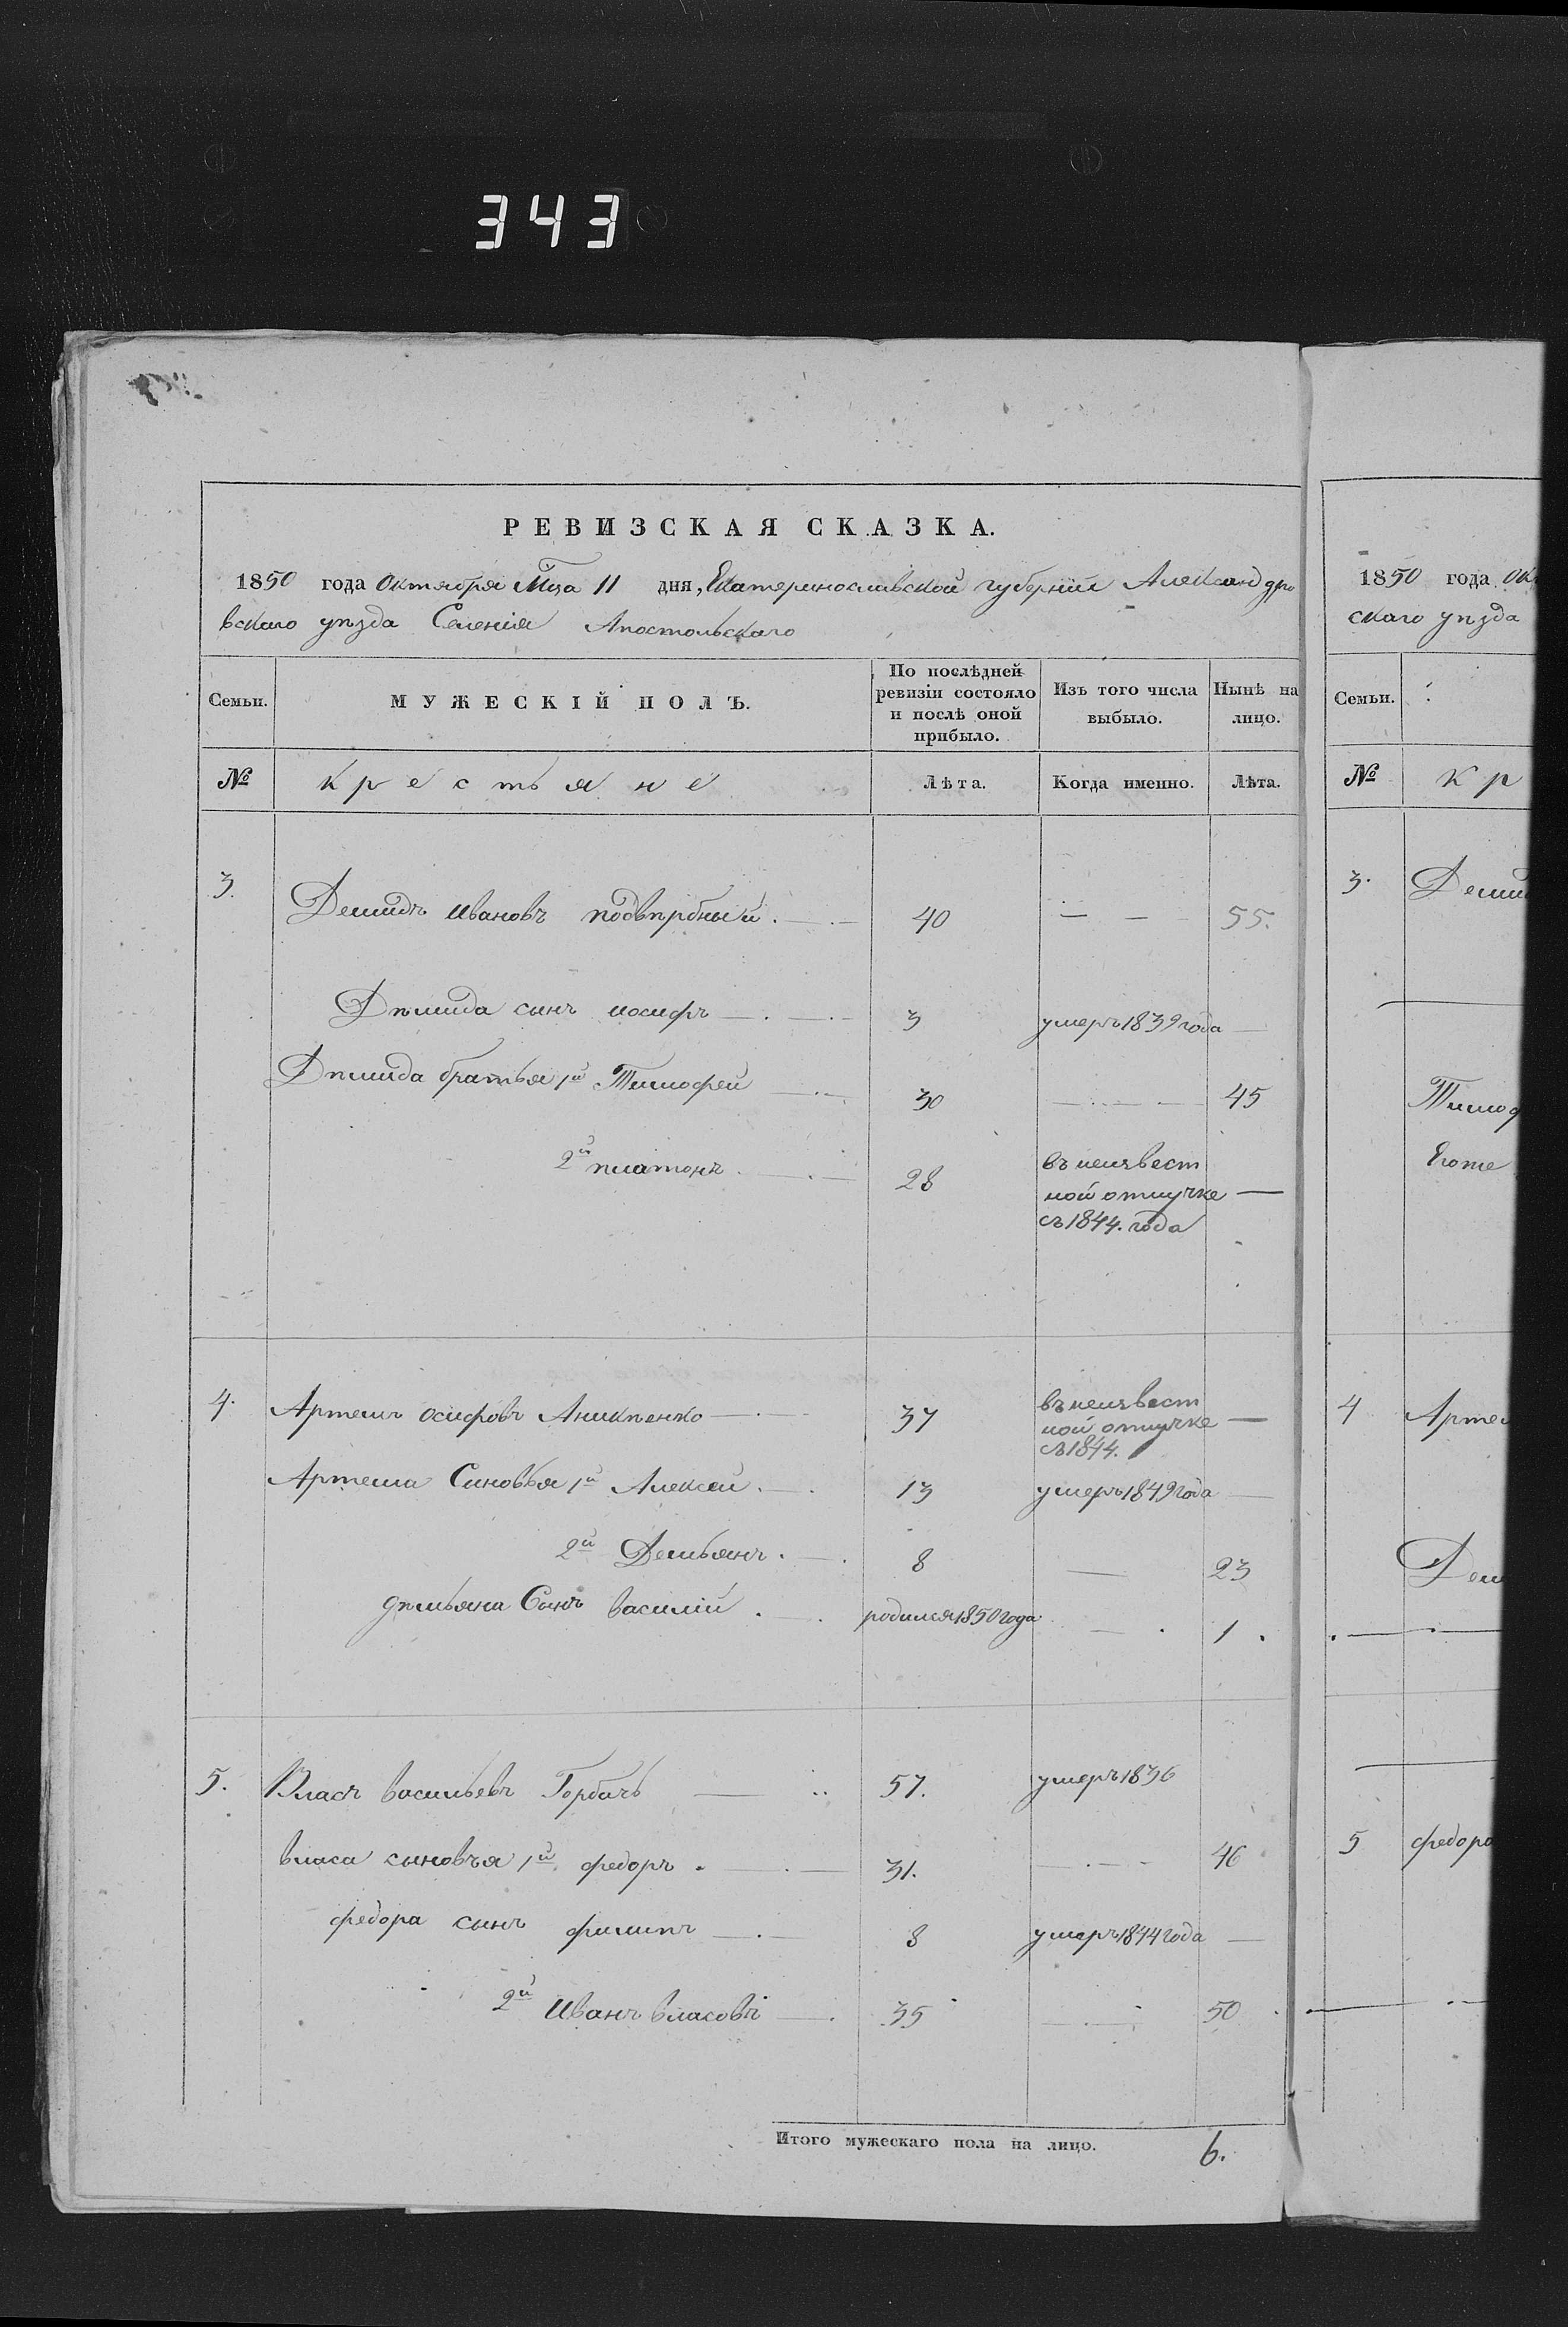 343
РЕВИЗСКАЯ СКАЗКА.
1850 года Октября Мца 11 дня, Екатеринославской губерніи Александро
вскаго уѣзда Селенія Апостольскаго
Семьи. МУЖЕСКІЙ ПОЛЪ. По послѣдней ревизіи состояло и послѣ оной прибыло. Изъ того числа выбыло. Нынѣ на лицо.
№ крестьяне Лѣта. Когда именно. Лѣта.
3. Демидъ Ивановъ 40 — — 55.
Дѣмида сынъ иосифъ 3 умеръ 1839 года —
Дѣмида братья 1й Тимофей 30 — 45
2й платонъ 28 въ неизвест
ной отлучке —
съ 1844. года
4. Артемъ осифовъ Аникѣенко 37 въ неизвест
ной отлучке —
съ 1844.
Артема Синовья 1й Алексей 13 умеръ 1849 года —
2й Демьянъ 8 — 23
дѣмьяна Сынъ василій родился 1850 года — 1.
5. Власъ васильевъ Горбачь 57. умеръ 1836
власа сыновъя 1й федоръ 31. — 46
федора сынъ филипъ 8 умеръ 1844 года —
2й Иванъ власовъ 35 — 50
Итого мужескаго пола на лицо. 6.
1850 года ок
скаго уѣзда
Семьи.
№ кр
3. Деми
Тимоф
4 Арте
Дем
5 федора